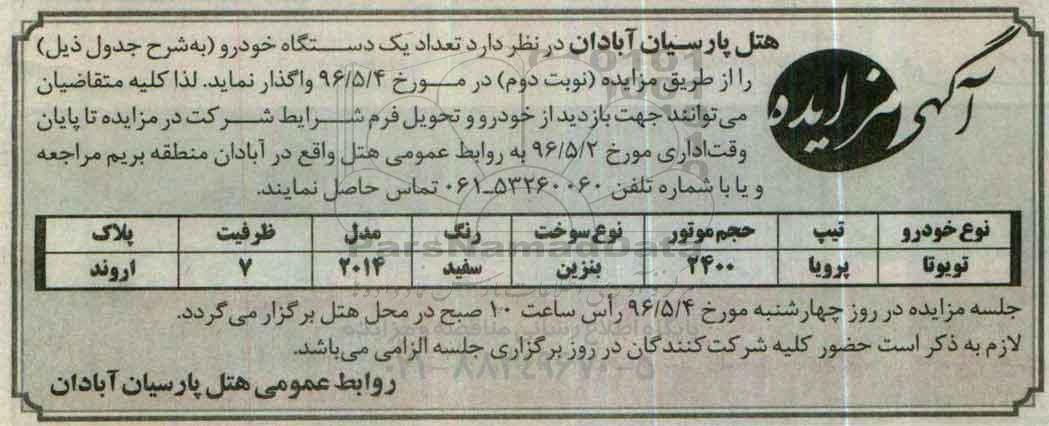 آگهی مزایده
هتل پارسیان آبادان در نظر دارد تعداد یک دستگاه خودرو (به‌شرح جدول ذیل)
را از طریق مزایده (نوبت دوم) در مورخ ۹۶/۵/۴ واگذار نماید. لذا کلیه متقاضیان
می‌توانند جهت بازدید از خودرو و تحویل فرم شرایط شرکت در مزایده تا پایان
وقت‌اداری مورخ ۹۶/۵/۲ به روابط عمومی هتل واقع در آبادان منطقه بریم مراجعه
و یا با شماره تلفن ۵۳۲۶۰۰۶۰-۰۶۱ تماس حاصل نمایند.
نوع خودرو تیپ حجم موتور نوع سوخت رنگ مدل ظرفیت پلاک
تویوتا پرویا ۲۴۰۰ بنزین سفید ۲۰۱۴ ۷ اروند
جلسه مزایده در روز چهارشنبه مورخ ۹۶/۵/۴ رأس ساعت ۱۰ صبح در محل هتل برگزار می‌گردد.
لازم به ذکر است حضور کلیه شرکت‌کنندگان در روز برگزاری جلسه الزامی می‌باشد.
روابط عمومی هتل پارسیان آبادان
ParsNamadData
پایگاه اطلاع رسانی مناقصه و مزایده
۰۲۱-۸۸۳۴۹۶۷۰-۵